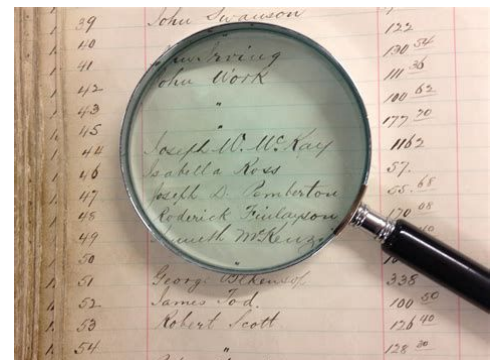 39 John Swanson 122
40 " 130 54
41 John Irving 111 36
42 John Work 100 62
43 " 177 70
45 "
44 Joseph W. McKay 1162
46 Isabella Ross 57.
47 Joseph D. Pemberton 55.68
48 Roderick Finlayson 170 08
49 Kenneth McKenzie
50 "
51 George 338
52 James Tod. 100 50
53 Robert Scott. 126 40
54 " 128 20